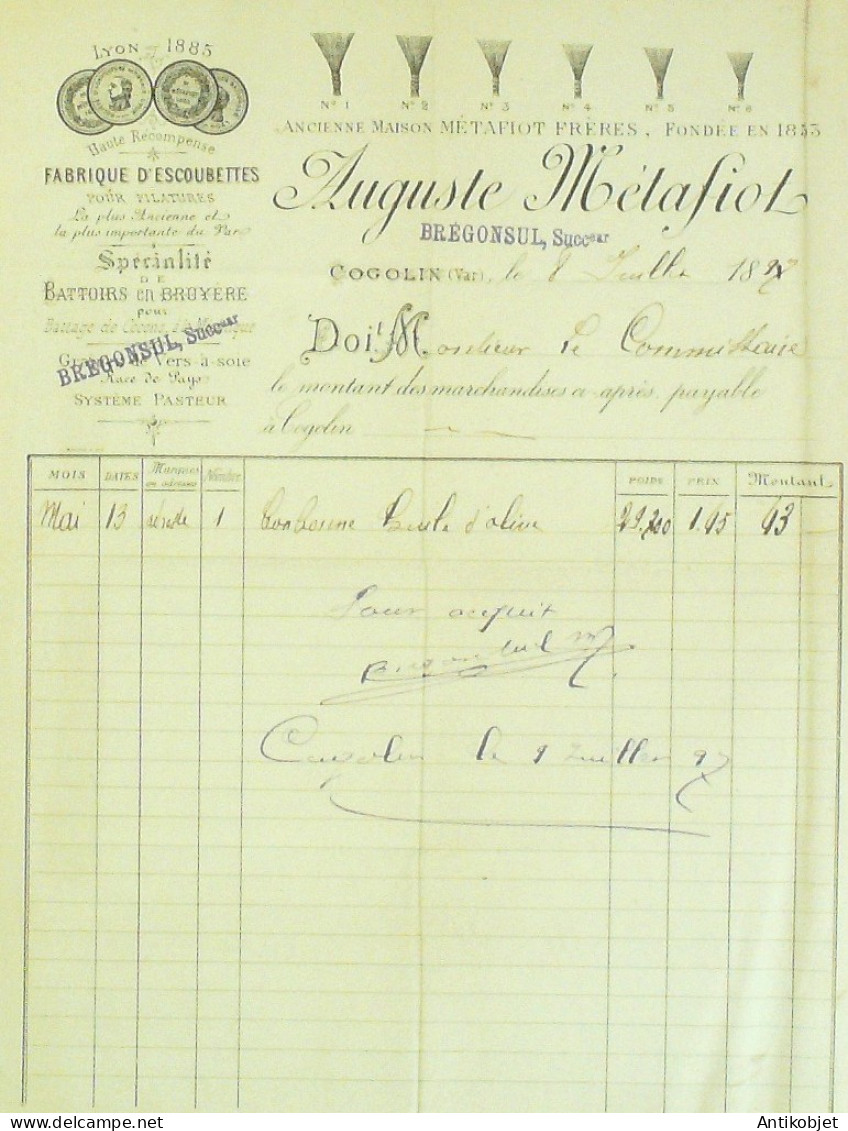 LYON 1885
Haute Récompense
FABRIQUE D'ESCOUBETTES
POUR FILATURES
La plus Ancienne et
la plus importante du Var
Spécialité
DE
BATTOIRS en BRUYÈRE
pour
Battage de Cocons
BREGONSUL, Succeur
Vers-à-soie
Race de Pays
SYSTÈME PASTEUR
No 1 No 2 No 3 No 4 No 5 No 6
ANCIENNE MAISON MÉTAFIOT FRÈRES, FONDÉE EN 1853
Auguste Métafiot
BRÉGONSUL, Succeur
COGOLIN (Var), le 8 Juillet 1897
Doit M. Monsieur le Commissaire
le montant des marchandises ci-après payable
à Cogolin
MOIS DATES Marques en adresses Nombre POIDS PRIX Montant
Mai 13 1 Bonbonne huile d'olive 1.95
Pour acquit
Bregonsul
Cogolin le 9 Juillet 97
Antikobjet